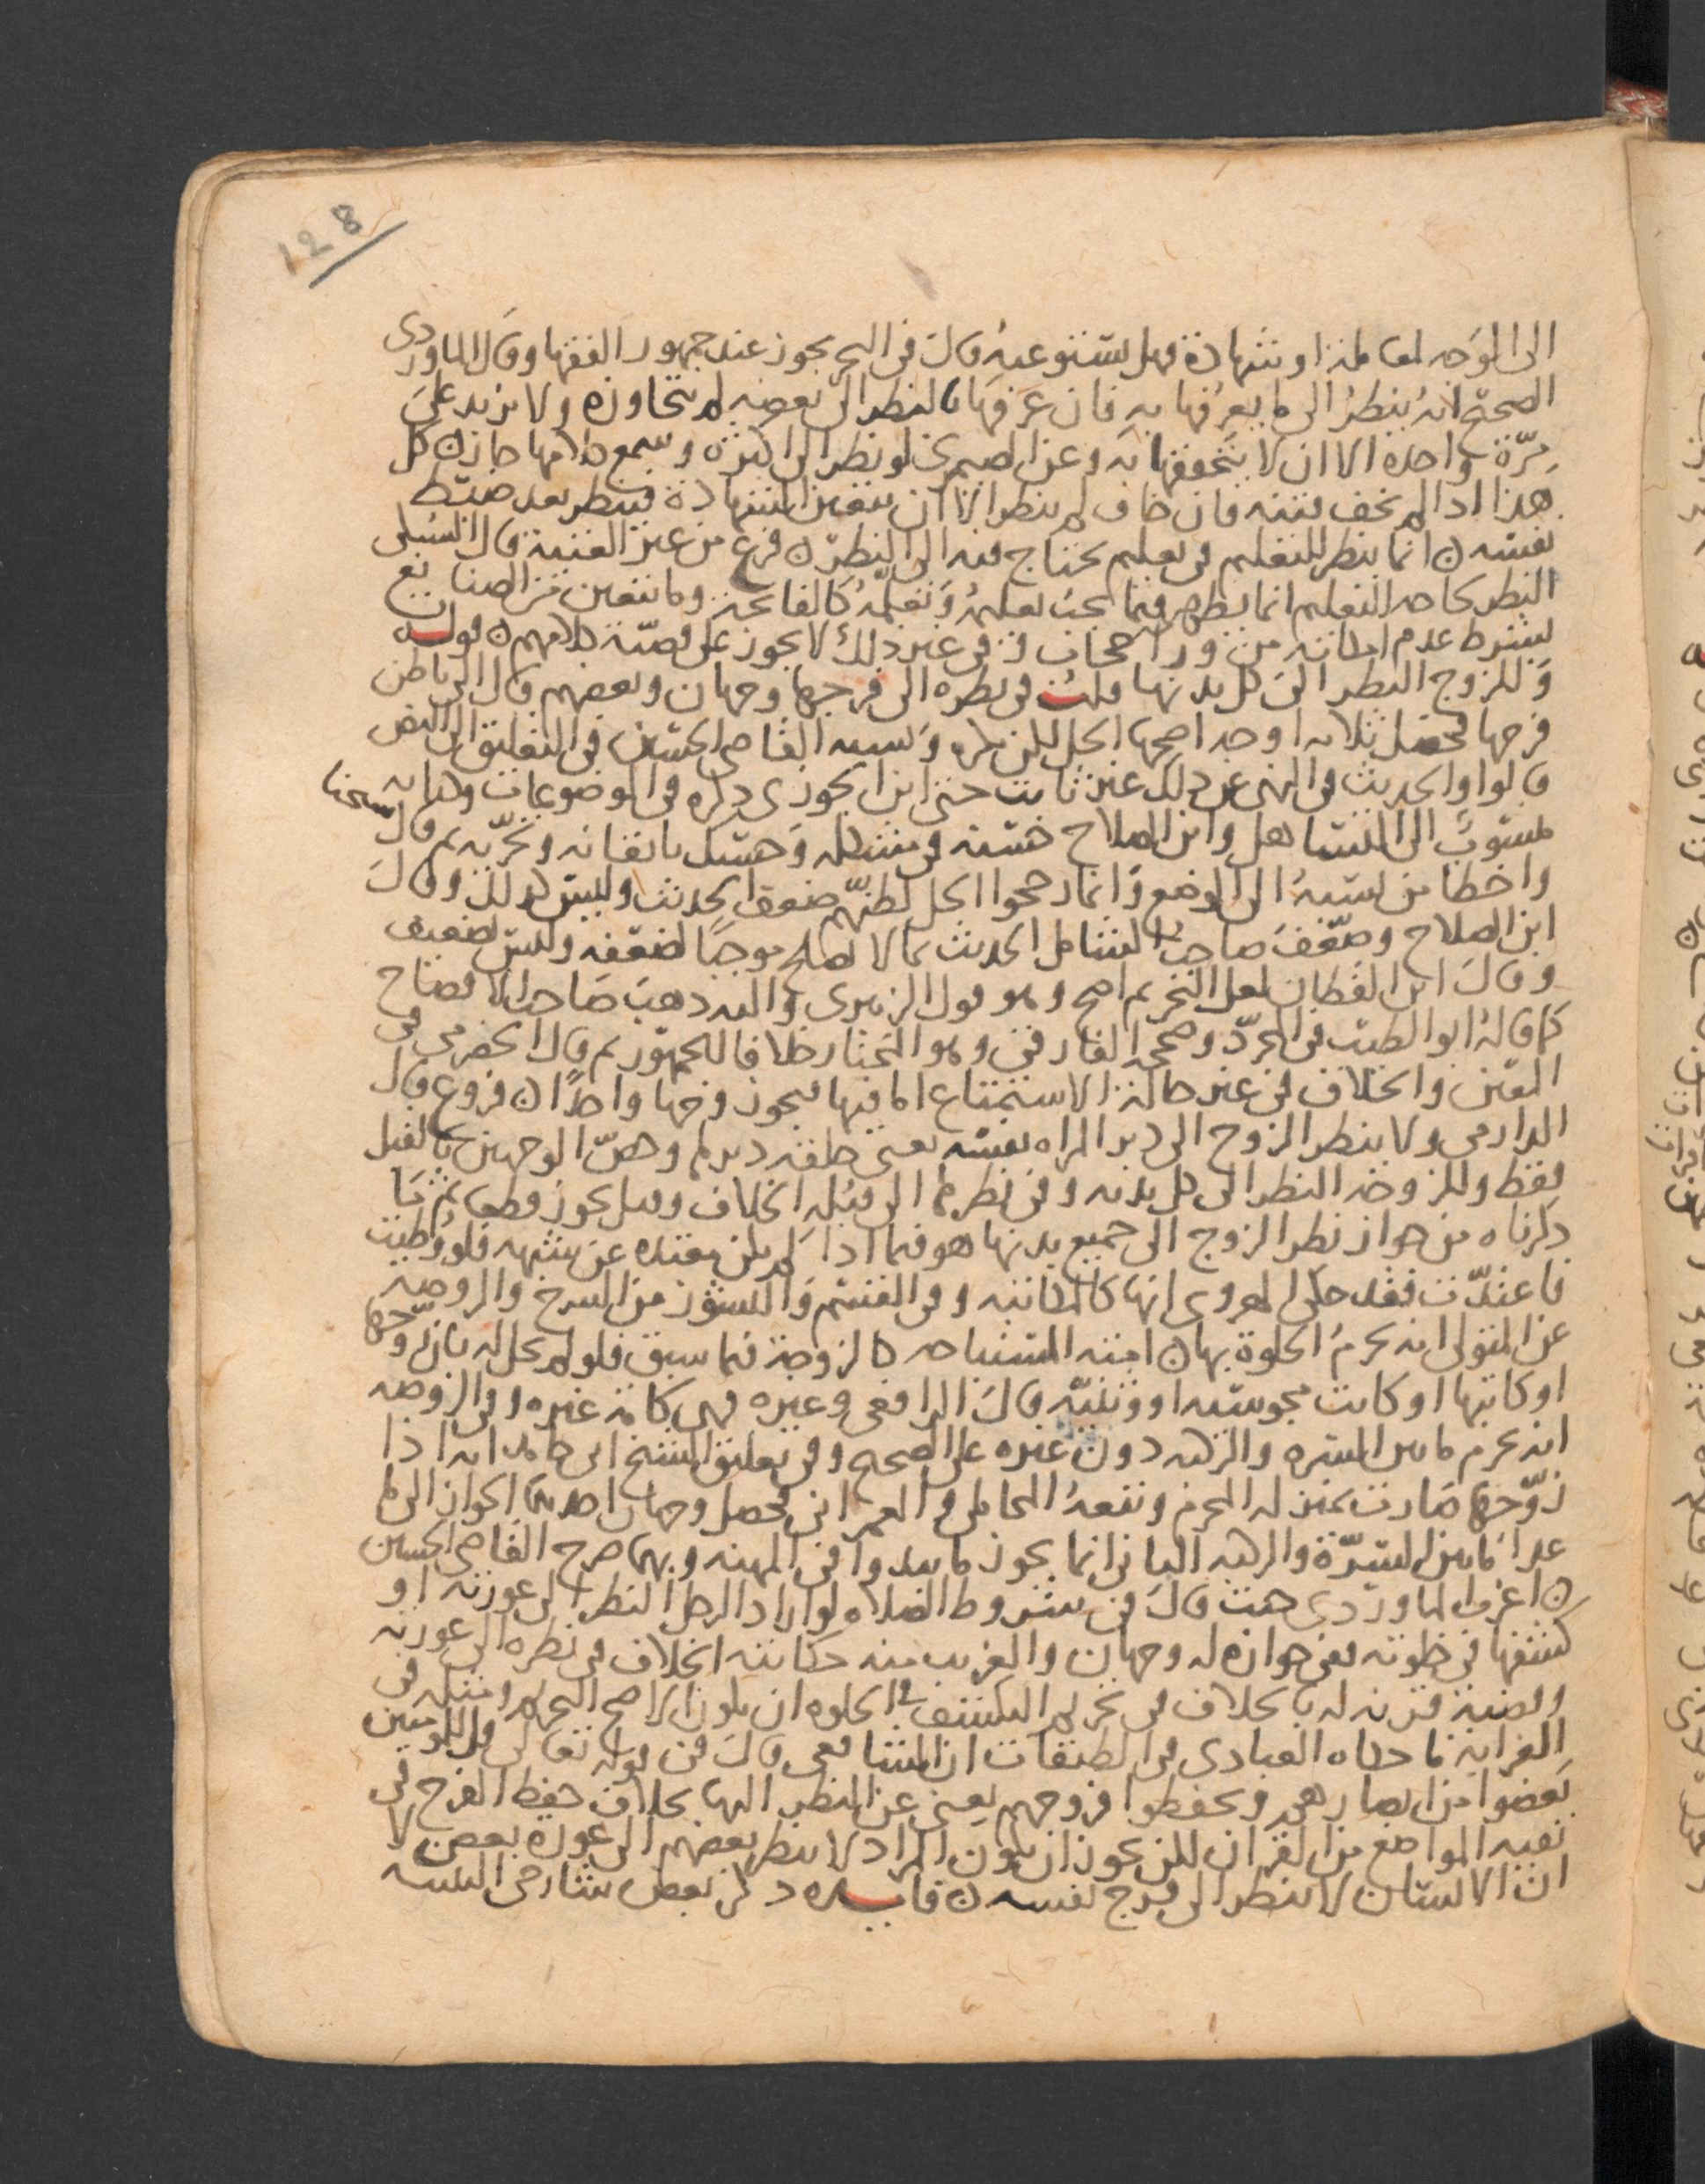 128
الى الوجه لمعاملة او شهادة فهل يستوعبه قال فى البحر يجوز عند جمهور الفقها وقال الماوردى
الصحيح انه ينظر الى ما يعرفها به فان عرفها بالنظر الى بعضه لم يتجاوزه ولا يزيد على
مرة واحدة الا ان لا يتحققها به وعن الصيمرى لو نظر الى الكثرة وسمع كلامها جاز ن كل
هذا اذا لم يخف فتنه فان خاف لم ينظر الا ان يتعين الشهادة فينظر بعد ضبط
نفسه ن انما ينظر للتعليم فى تعليم يحتاج فيه الى النظر ن فرع من غير الغنية قال السبكى
النظر لحاجه التعليم انما يظهر فيما يجب تعلمه وتعليمه كالفاتحة وما يتعين من الصنايع
بشرط عدم امكانه من ورا حجاب وفى غير ذلك لا يجوز على قضية كلامهم ن قولـــه
وللزوج النظر الى كل بدنها قلـــت فى نظره الى فرجها وجهان وبعضهم قال الى باطن
فرجها فحصل ثلاثه اوجه اصحها الحل لكن يكره ونسبه القاضى الحسين فى التعليق الى النص
قالوا والحديث فى النهى عن ذلك غير ثابت حتى ابن الجوزى ذكره فى الموضوعات وكتابه
منسوب الى التساهل وابن الصلاح حسنه فى مشكله وحسبك باتقانه وتحريه ثم قال شيخنا
واخطا من نسبه الى الوضع وانما رجحوا الحل لظنهم ضعف الحديث وليس كذلك وقال
ابن الصلاح وضعف صاحب الشامل الحديث بما لا يصلح موجبا لضعفه وليس بضعيف
وقال ابن القطان لعل التحريم اصح وهو قول الزبيرى واليه ذهب صاحب الافصاح
كما قاله ابو الطيب فى المجرد وصححه الفارقى وهو المختار خلافا للجمهور ثم قال الحضرمى فى
المعين والخلاف فى غير حالة الاستمتاع اما فيها فيجوز وجها واحدًا ن فروع قال
الدارمى ولا ينظر الزوج الى دبر المراه نفسه يعنى حلقة دبرها وخص الوجهين بالقبل
فقط وللزوجه النظر الى كل بدنه وفى نظرها الى قبله الخلاف وقيل يجوز قطعا ثم ما
ذكرناه من جواز نظر الزوج الى جميع بدنها هو فيما اذا لم يكن معتده عن شبهه فلو وطيت
فاعتدت فقد حكى الهروى انها كالمكاتبه وفى القسم والنشوز من الشرح والروضه
عن المتولى انه يحرم الخلوة بها ن امته المستباحه كالزوجة فيما سبق فلو لم يحل له بان زوجها
او كاتبها او كانت مجوسيه او وثنيه قال الرافعى وغيره فهى كامة غيره وفى الروضه
انه يحرم ما بين السره والركبه دون غيره على الصحيح وفى تعليق الشيخ ابى حامد انه اذا
زوجها صارت بمنزله المحرم وتبعه المحاملى و العمرانى فحصل وجهان احدهما الجواز الى ما
عدا ما بين السرة والركبه الثانى انما يجوز ما يبدوا فى المهنه وبهما صرح القاضى الحسين
ن اغرب الماوردى حيث قال فى شروط الصلاه لو اراد الرجل النظر الى عورته او
كشفها فى خلوته ففى جوازه له وجهان والغريب منه حكايته الخلاف فى نظره الى عورته
وقضية قربنه له بالخلاف فى تحريم التكشف فى الخلوه ان يكون الاصح التحريم ومثله فى
الغرابه ما حكاه العبادى فى الطبقات ان الشافعى قال فى قوله تعالى قل للمومنين
يغضوا من ابصارهم ويحفظوا فروجهم يعنى عن النظر اليها بخلاف حفظ الفرج فى
بقيه المواضع من القران لكن يجوز ان يكون المراد لا ينظر بعضهم الى عورة بعض لا
ان الانسان لا ينظر الى فرج نفسه ن فايـــده ذكر بعض شارحى التنبيه